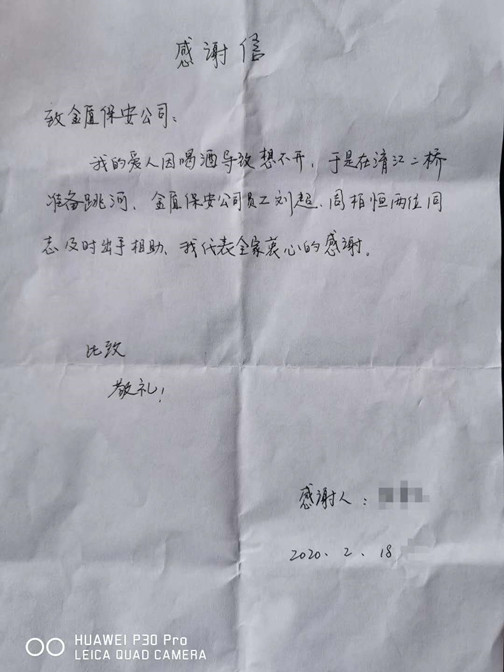 感谢信
致金盾保安公司：
我的爱人因喝酒导致想不开，于是在清江二桥
准备跳河，金盾保安公司员工刘超、周相恒两位同
志及时出手相助、我代表全家衷心的感谢。
此致
敬礼！
感谢人：
2020、2、18
HUAWEI P30 Pro
LEICA QUAD CAMERA